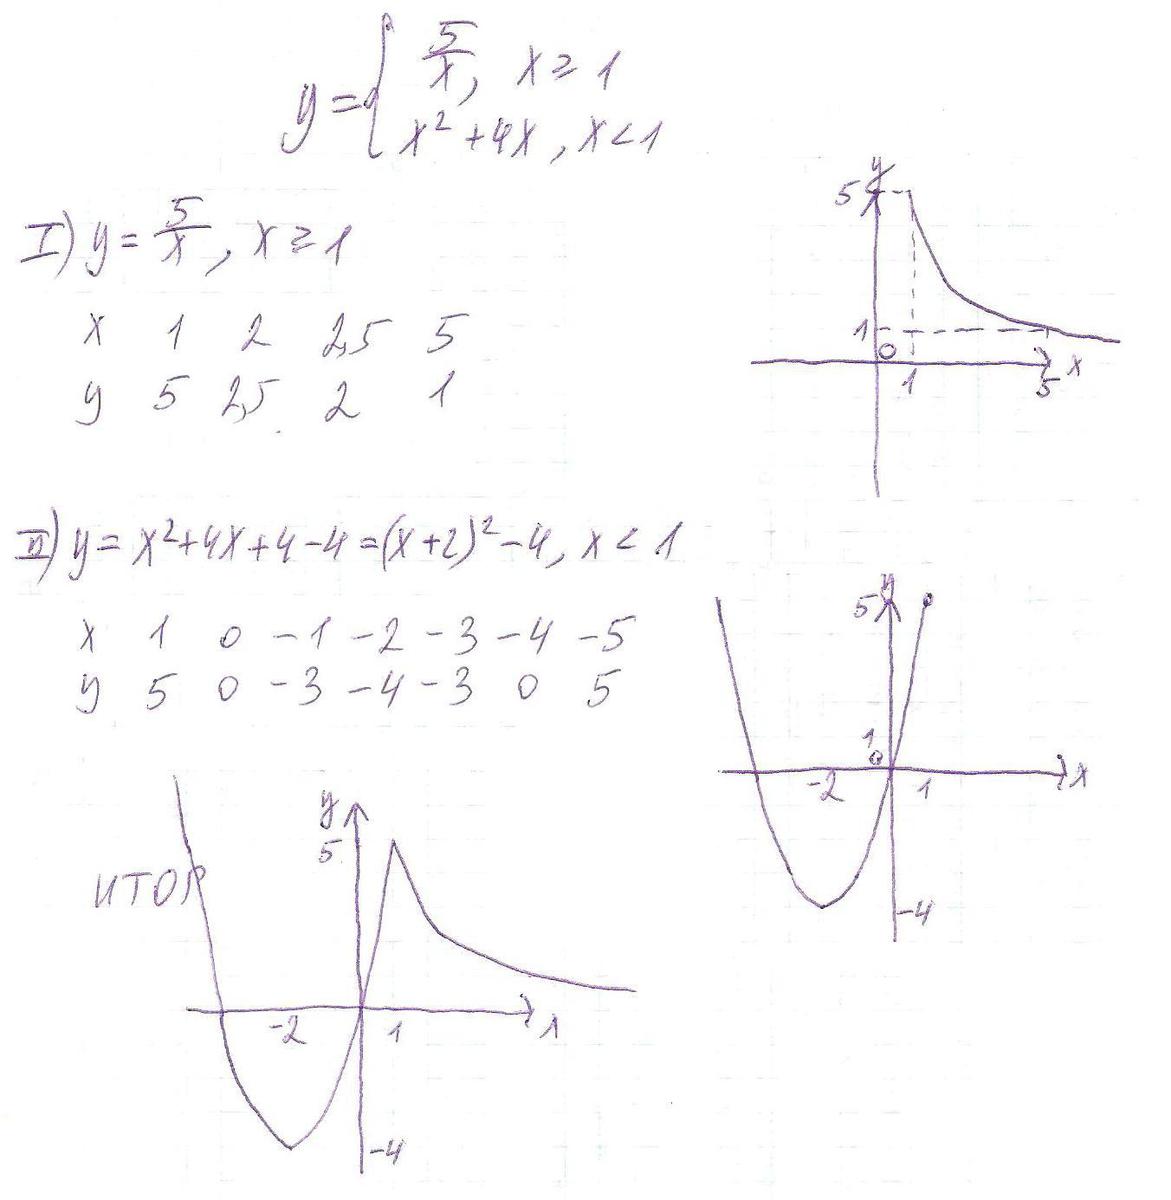 y = { 5/x, x ≥ 1
x² + 4x, x < 1
I) y = 5/x, x ≥ 1
x 1 2 2,5 5
y 5 2,5 2 1
y
5
1
0
1 5 x
II) y = x² + 4x + 4 - 4 = (x + 2)² - 4, x < 1
x 1 0 -1 -2 -3 -4 -5
y 5 0 -3 -4 -3 0 5
y
5
1
0
-2 1 x
-4
ИТОГ
y
5
-2 1 x
-4